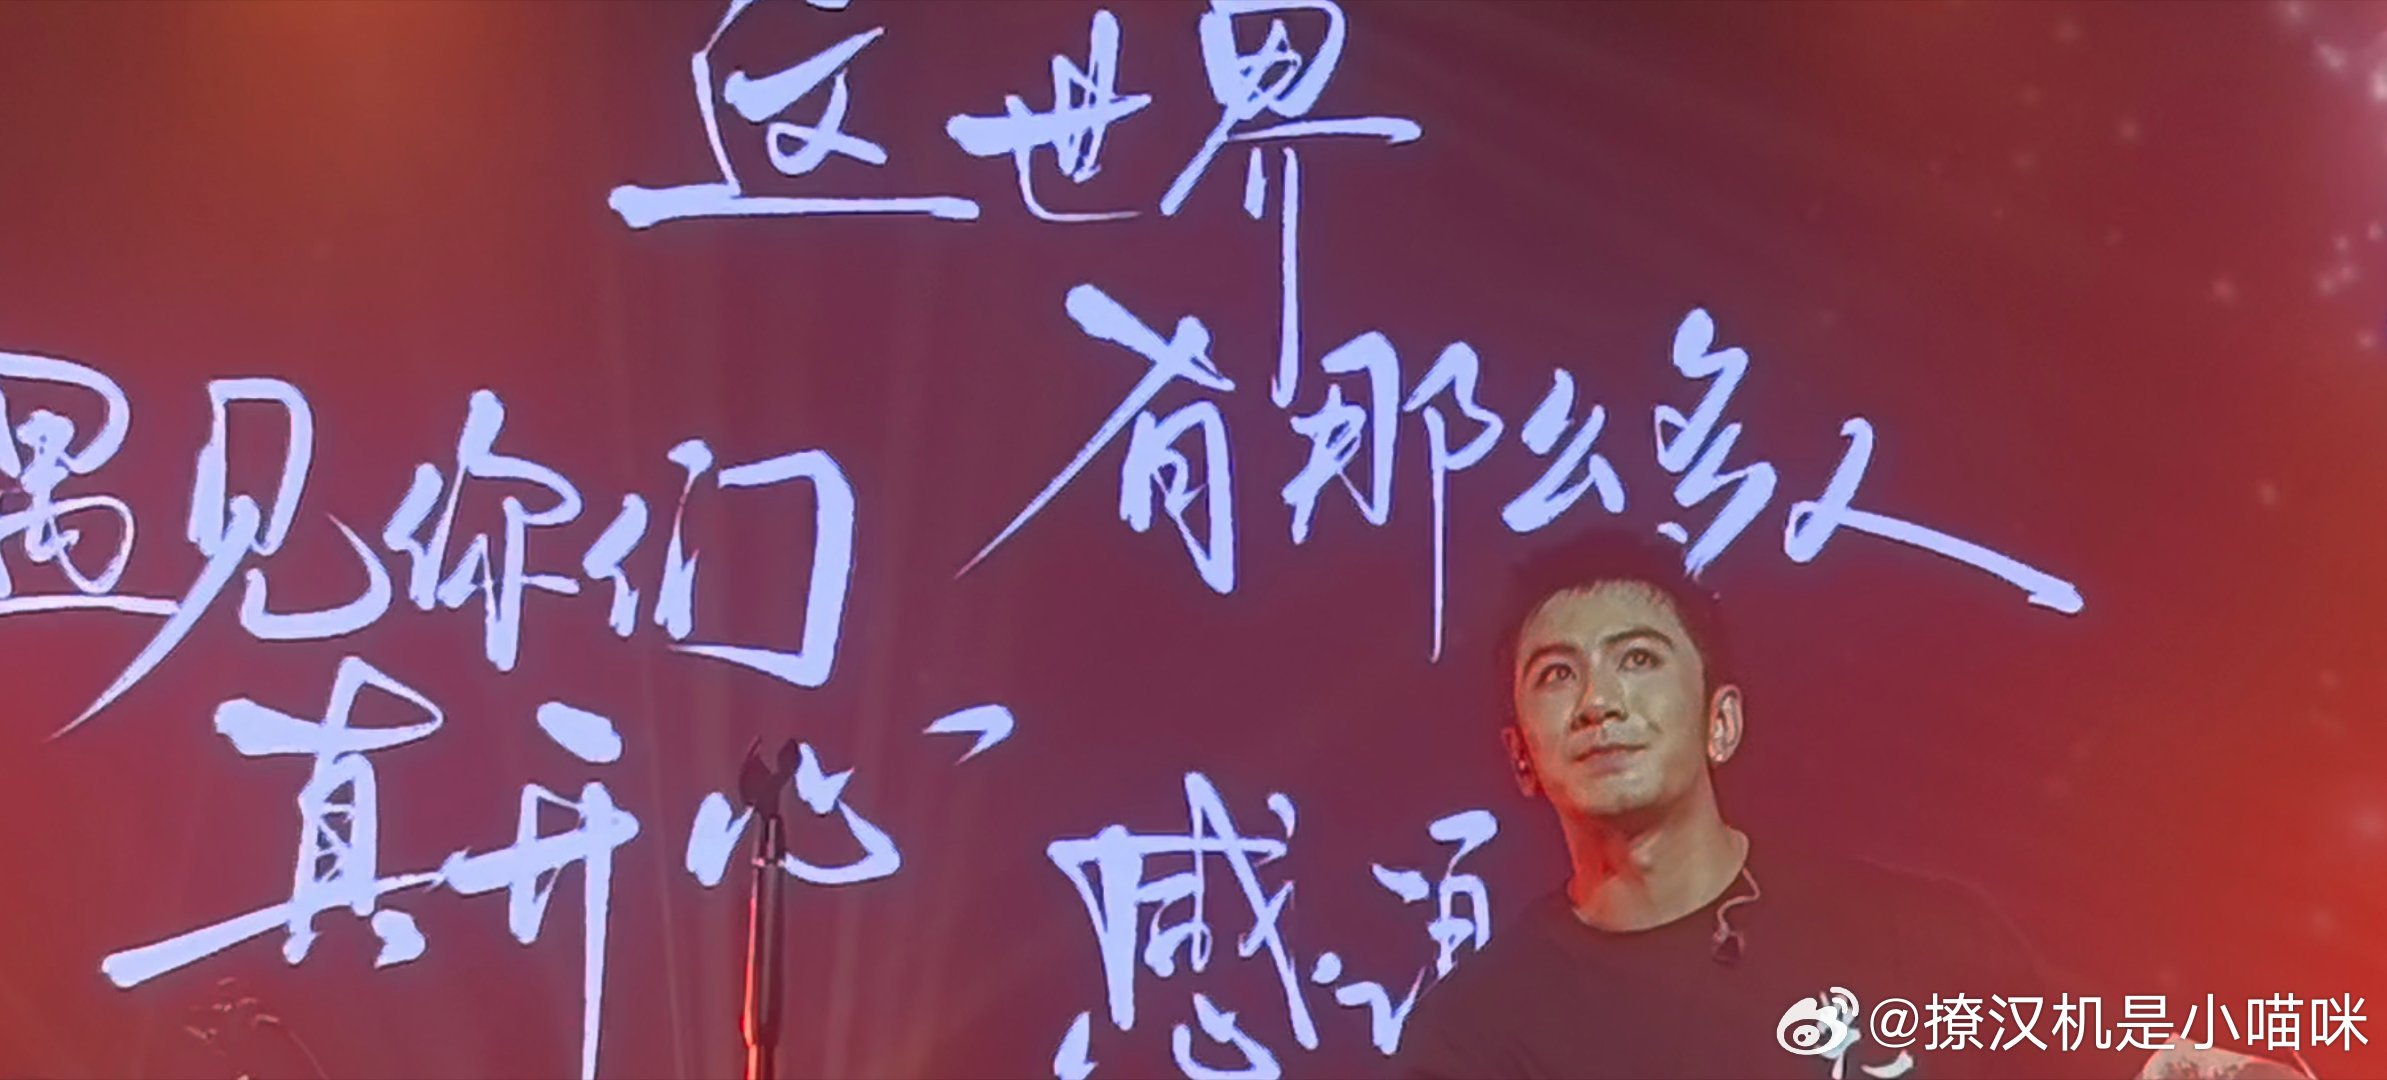 这世界
有那么多人
遇见你们
真开心
感
@撩汉机是小喵咪